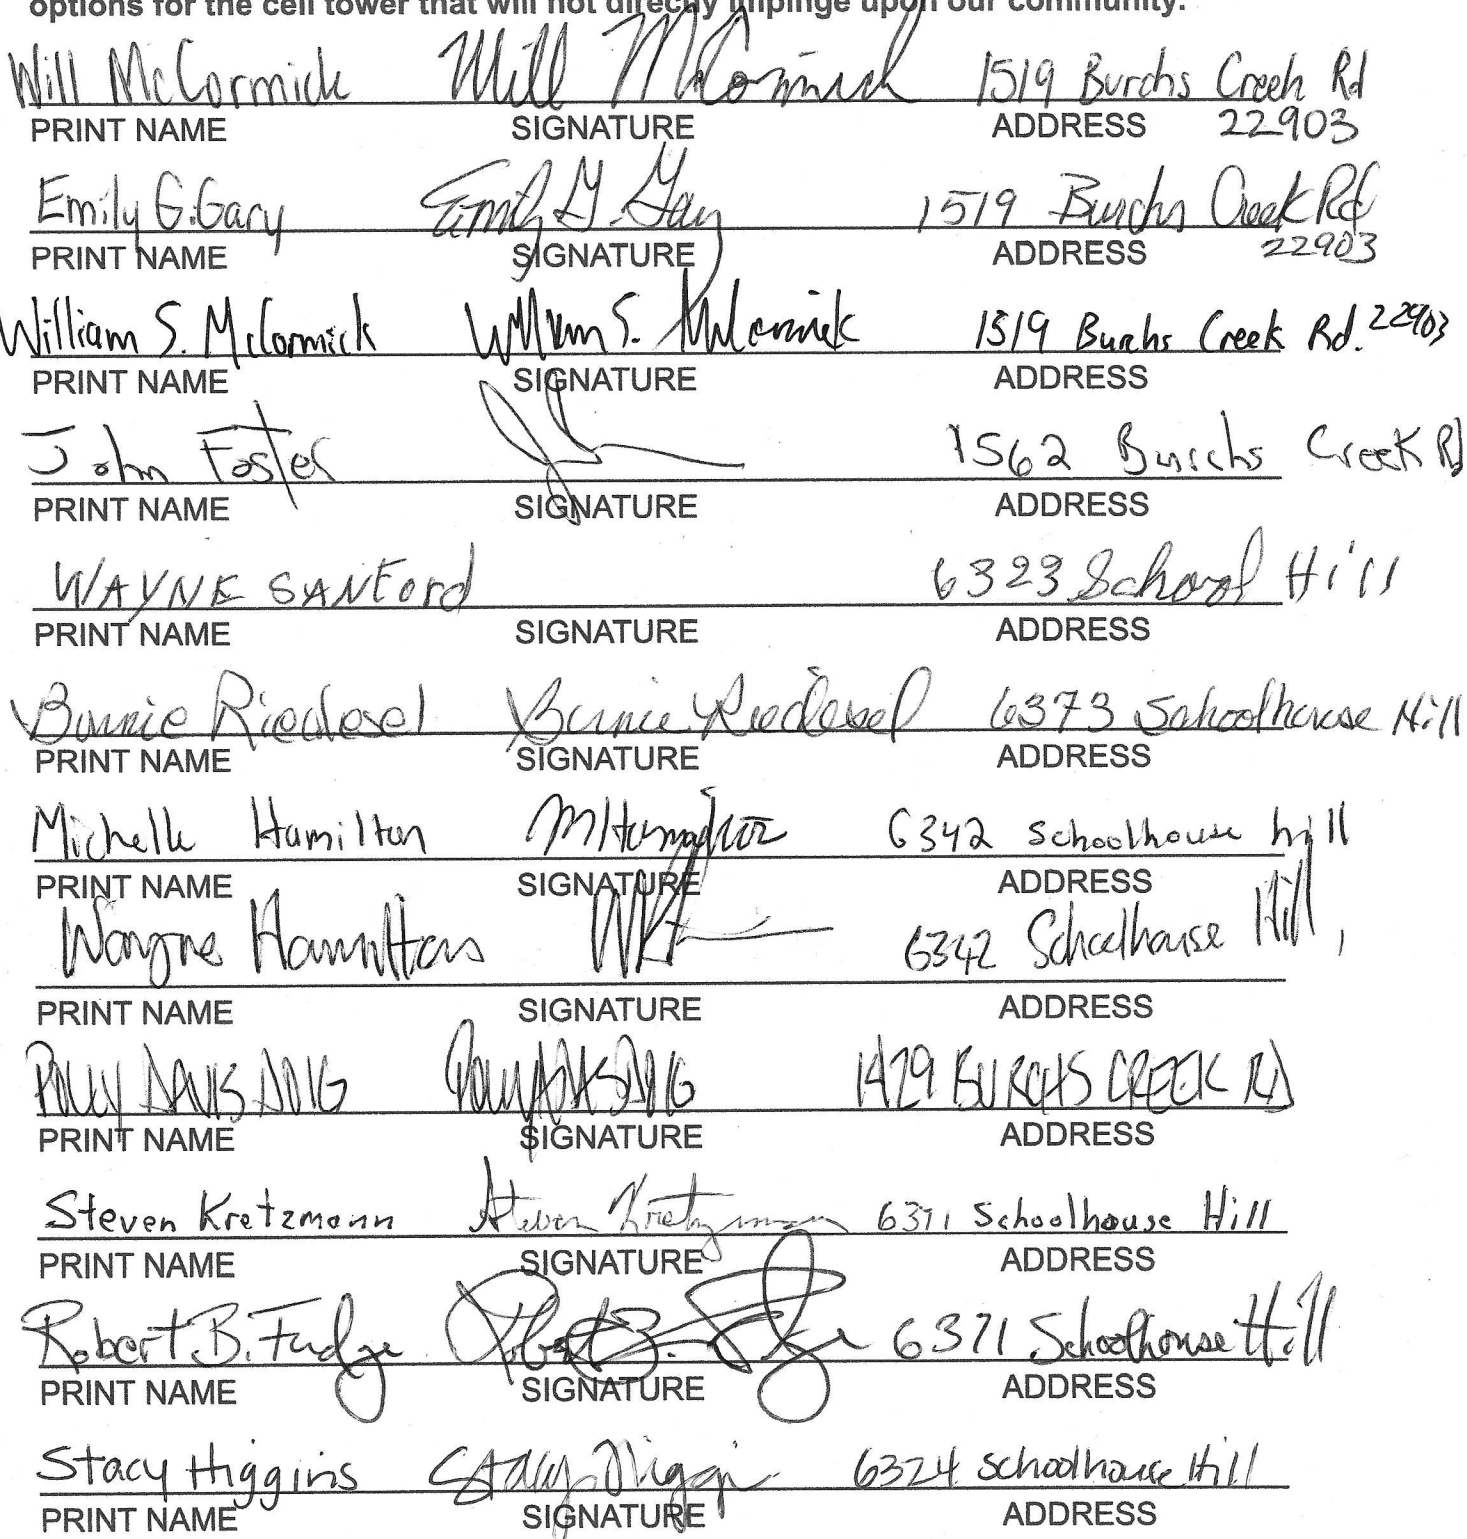 options for the cell tower that will not directly impinge upon our community.
Will McCormick Will McCormick 1519 Burchs Creek Rd
PRINT NAME SIGNATURE ADDRESS 22903
Emily G. Gary Emily G. Gary 1519 Burchs Creek Rd
PRINT NAME SIGNATURE ADDRESS 22903
William S. McCormick William S. McCormick 1519 Burchs Creek Rd. 22903
PRINT NAME SIGNATURE ADDRESS
John Foster 1562 Burchs Creek Rd
PRINT NAME SIGNATURE ADDRESS
WAYNE SANFord 6323 School Hill
PRINT NAME SIGNATURE ADDRESS
Bunnie Riedesel Bunnie Riedesel 6373 Schoolhouse Hill
PRINT NAME SIGNATURE ADDRESS
Michelle Hamilton MHamilton 6342 Schoolhouse hill
PRINT NAME SIGNATURE ADDRESS
Wayne Hamilton 6342 Schoolhouse Hill,
PRINT NAME SIGNATURE ADDRESS
POLLY DAVIS DOIG POLLY DAVIS DOIG 1429 BURCHS CREEK RD
PRINT NAME SIGNATURE ADDRESS
Steven Kretzmann Steven Kretzmann 6371 Schoolhouse Hill
PRINT NAME SIGNATURE ADDRESS
Robert B. Fudge Robert B. Fudge 6371 Schoolhouse Hill
PRINT NAME SIGNATURE ADDRESS
Stacy Higgins Stacy Higgins 6324 Schoolhouse Hill
PRINT NAME SIGNATURE ADDRESS